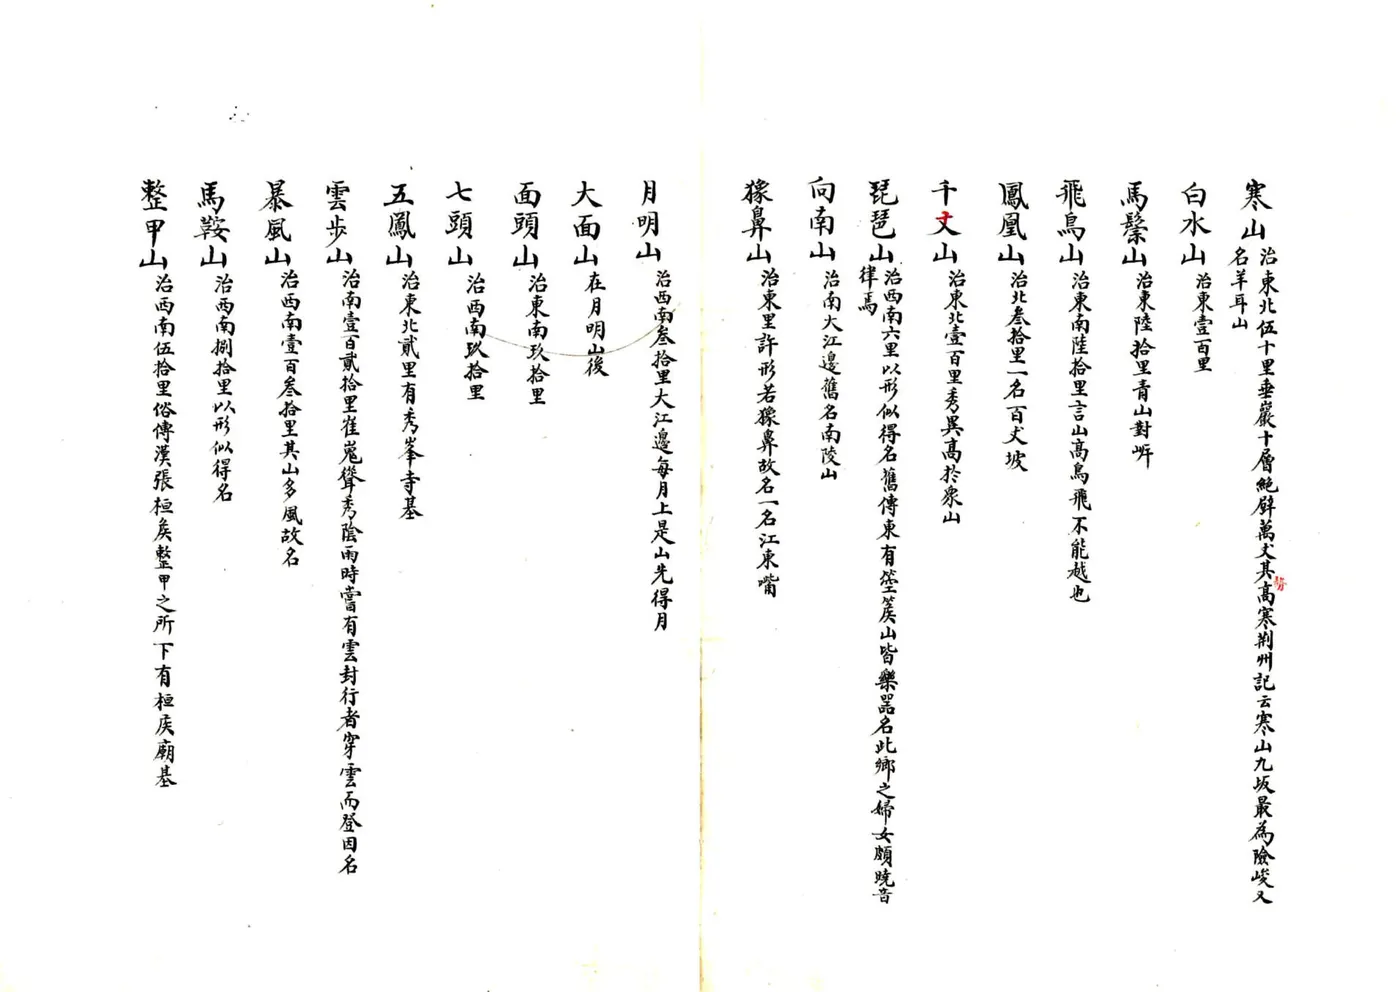 寒山 治東北伍十里垂巖十層絶壁萬丈其勢高寒荆州記云寒山九坂最為險峻又
名羊耳山
白水山 治東壹百里
馬鬃山 治東陸拾里青山對岈
飛鳥山 治東南陸拾里言山高鳥飛不能越也
鳳凰山 治北叁拾里一名百丈坡
千丈山 治東北壹百里秀異高於衆山
琵琶山 治西南六里以形似得名舊傳東有箜篌山皆樂器名此鄉之婦女頗曉音
律焉
向南山 治南大江邊舊名南陵山
豫鼻山 治東里許形若豫鼻故名一名江東嘴
月明山 治西南叁拾里大江邊每月上是山先得月
大面山 在月明山後
面頭山 治東南玖拾里
七頭山 治西南玖拾里
五鳳山 治東北貳里有秀峯寺基
雲步山 治南壹百貳拾里崔嵬聳秀陰雨時嘗有雲封行者穿雲而登因名
暴風山 治西南壹百叁拾里其山多風故名
馬鞍山 治西南捌拾里以形似得名
整甲山 治西南伍拾里俗傳漢張桓矦整甲之所下有桓矦廟基